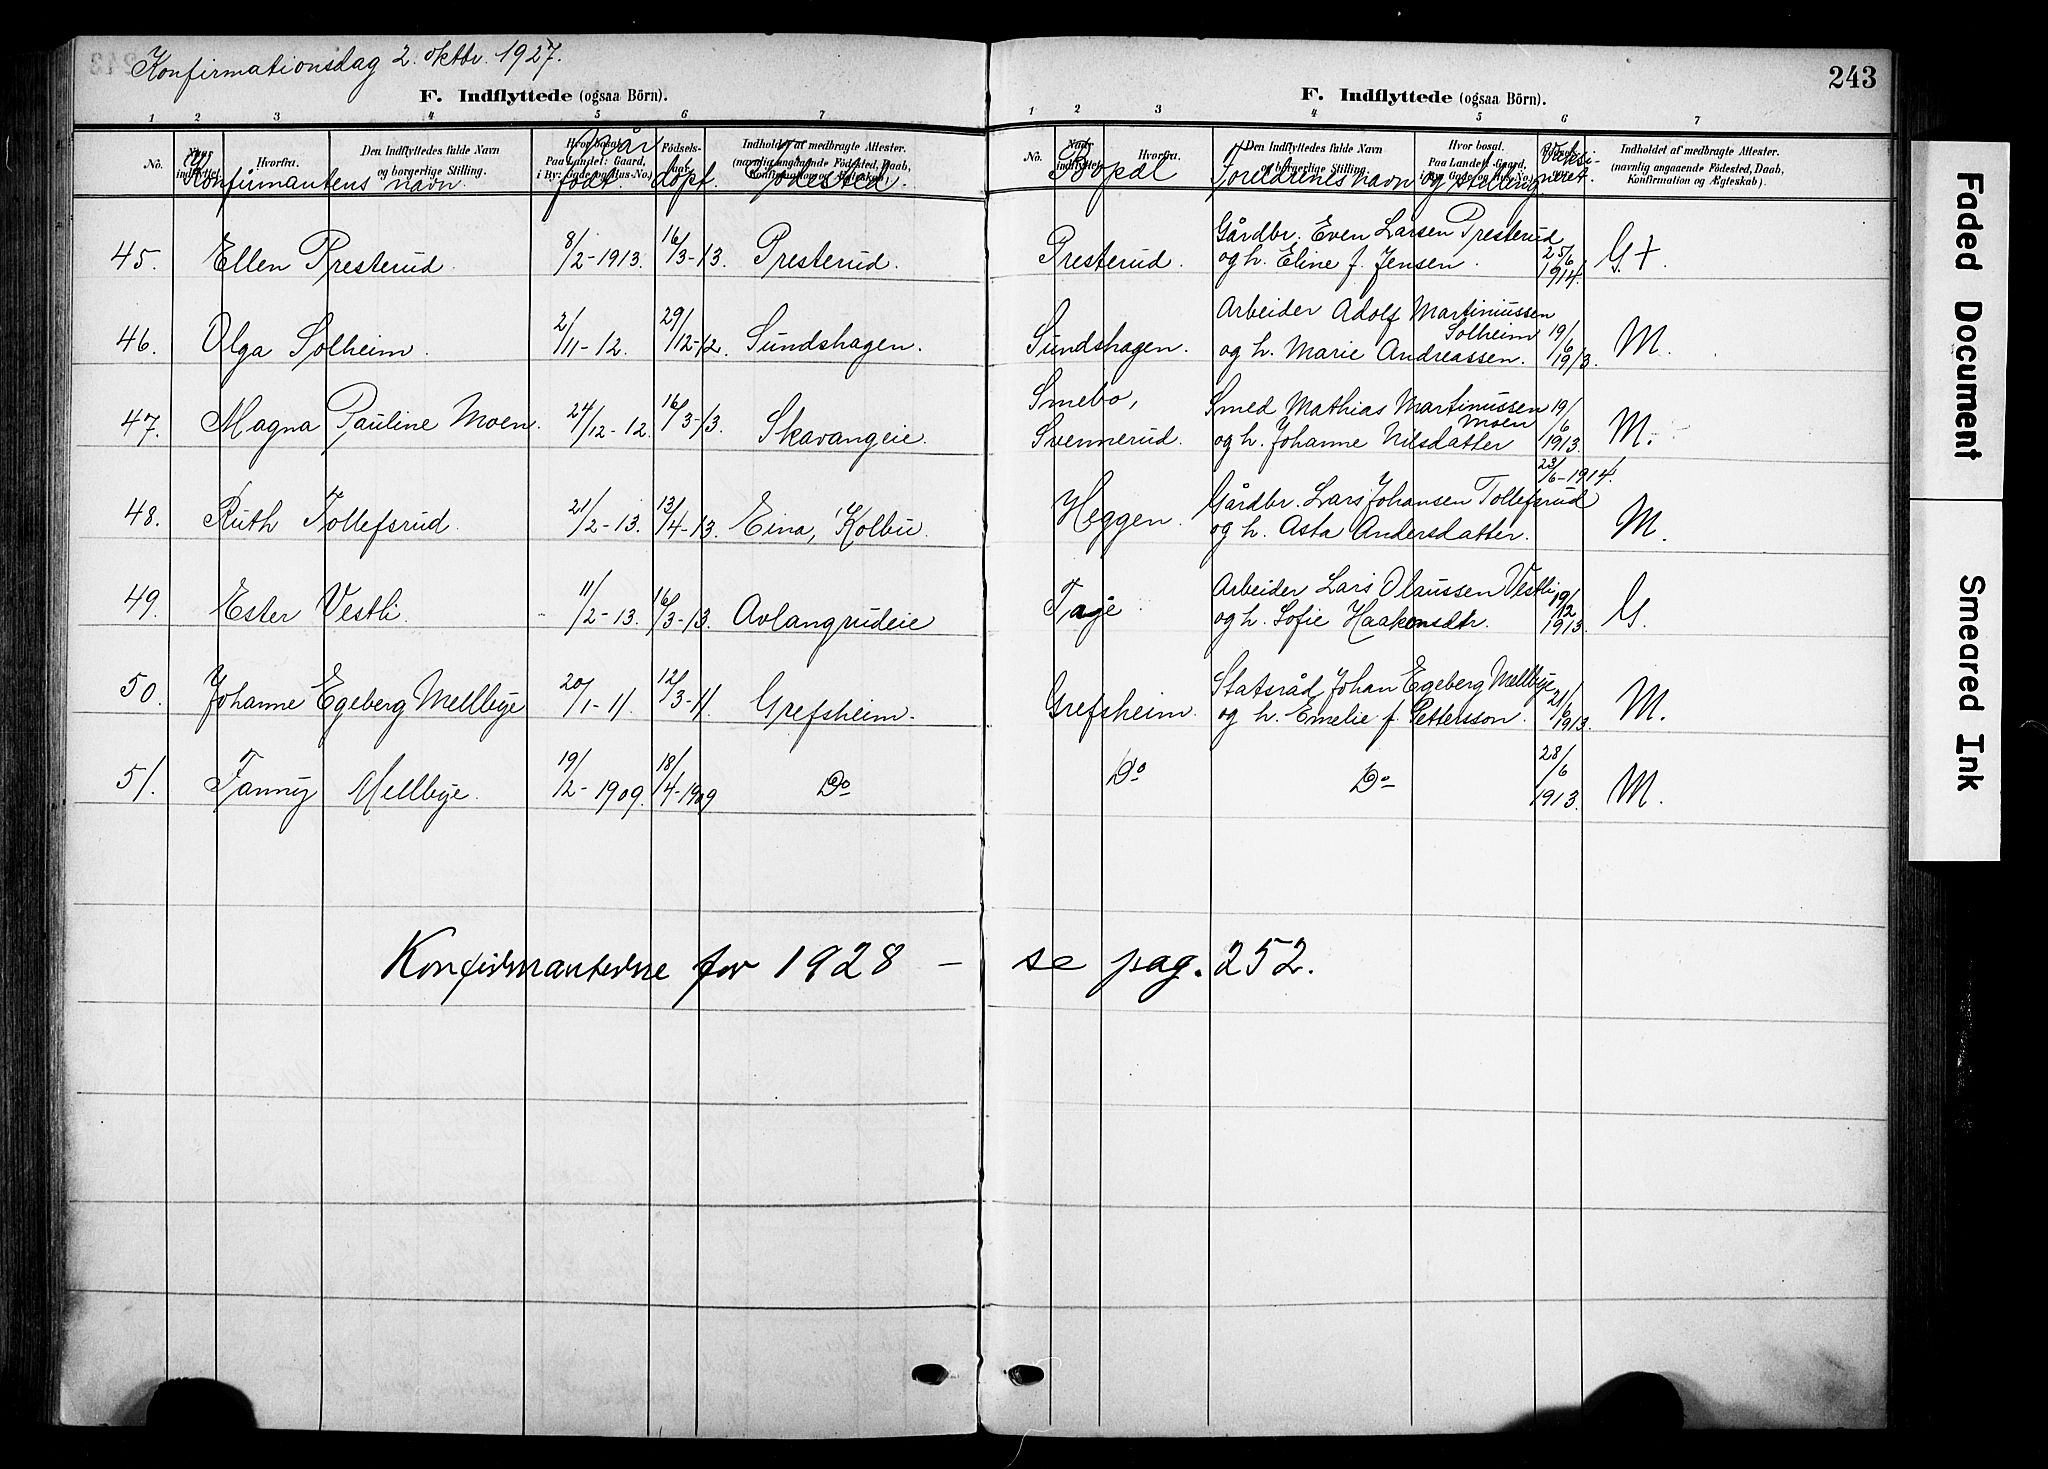 Konfirmationsdag 2. oktbr. 1927.
243
F. Indflyttede (ogsaa Börn).
F. Indflyttede (ogsaa Börn).
1 2 3 4 5 6 7
1 2 3 4 5 6 7
No. Hvorfra. Den Indflyttedes fulde Navn og borgerlige Stilling. Indholdet af medbragte Attester.
No. Hvorfra. Den Indflyttedes fulde Navn og borgerlige Stilling. Hvor bosat. Indholdet af medbragte Attester. (navnlig angaaende Födested, Daab, Konfirmation og Ægteskab).
Konfirmantens navn. Når født. døpt. Fødested.
Bopæl Foreldrenes navn og stilling Vaksineret.
45. Ellen Presterud. 8/2-1913. 16/3-13. Presterud. Presterud. Gårdbr. Even Larsen Presterud
og h. Eline f. Jensen. 25/6 1914. G +.
46. Olga Solheim. 2/11-12. 29/12-12. Sundshagen. Sundshagen. Arbeider Adolf Martiniussen Solheim
og h. Marie Andreassen. 19/6 1913. M.
47. Magna Pauline Moen. 24/12-12. 16/3-13. Skavangeie. Smebo, Svennerud. Smed Mathias Martinussen Moen
og h. Johanne Nilsdatter 19/6 1913. M.
48. Ruth Tollefsrud. 21/2-13. 13/4-13. Eina, Kolbu. Heggen. Gårdbr. Lars Johansen Tollefsrud
og h. Asta Andersdatter. 23/6-1914. M.
49. Ester Vestli. 11/2-13. 16/3-13. Avlangrudeie Taje Arbeider Lars Olaussen Vestli
og h. Sofie Haakonsdtr. 19/12 1913. G.
50. Johanne Egeberg Mellbye 20/1-11. 12/3-11. Grefsheim. Grefsheim. Statsråd Johan Egeberg Mellbye
og h. Emelie f. Pettersson. 21/6 1913. M.
51. Fanny Mellbye. 19/2-1909. 18/4-1909 Do Do Do 28/6 1913. M.
Konfirmanterne for 1928 - se pag. 252.
Faded Document
Smeared Ink